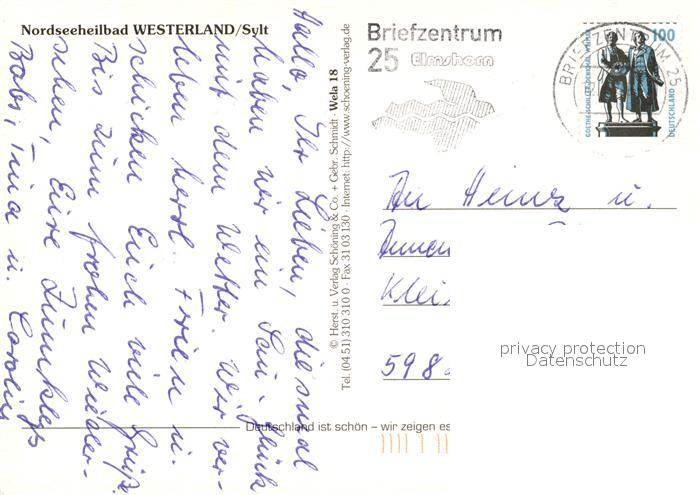 Nordseeheilbad WESTERLAND/Sylt
Hallo, Ihr Lieben, diesmal
haben wir ein Glück
mit dem Wetter. Wir ver-
leben herrl. Ferien u.
schicken Euch viele Grüße.
Bis zum frohen Wieder-
sehen, Eure
Babsi, Tina u. Carolin
© Herst. u. Verlag Schöning & Co. + Gebr. Schmidt · Wela 18
Tel. (04 51) 310 310 0 · Fax 31 03 130 · Internet: http://www.schoening-verlag.de
Briefzentrum
25 Elmshorn
BRIEFZENTRUM 25
GOETHE-SCHILLER-DENKMAL WEIMAR
100
DEUTSCHLAND
An Heinz u.
598
privacy protection
Datenschutz
Deutschland ist schön – wir zeigen es